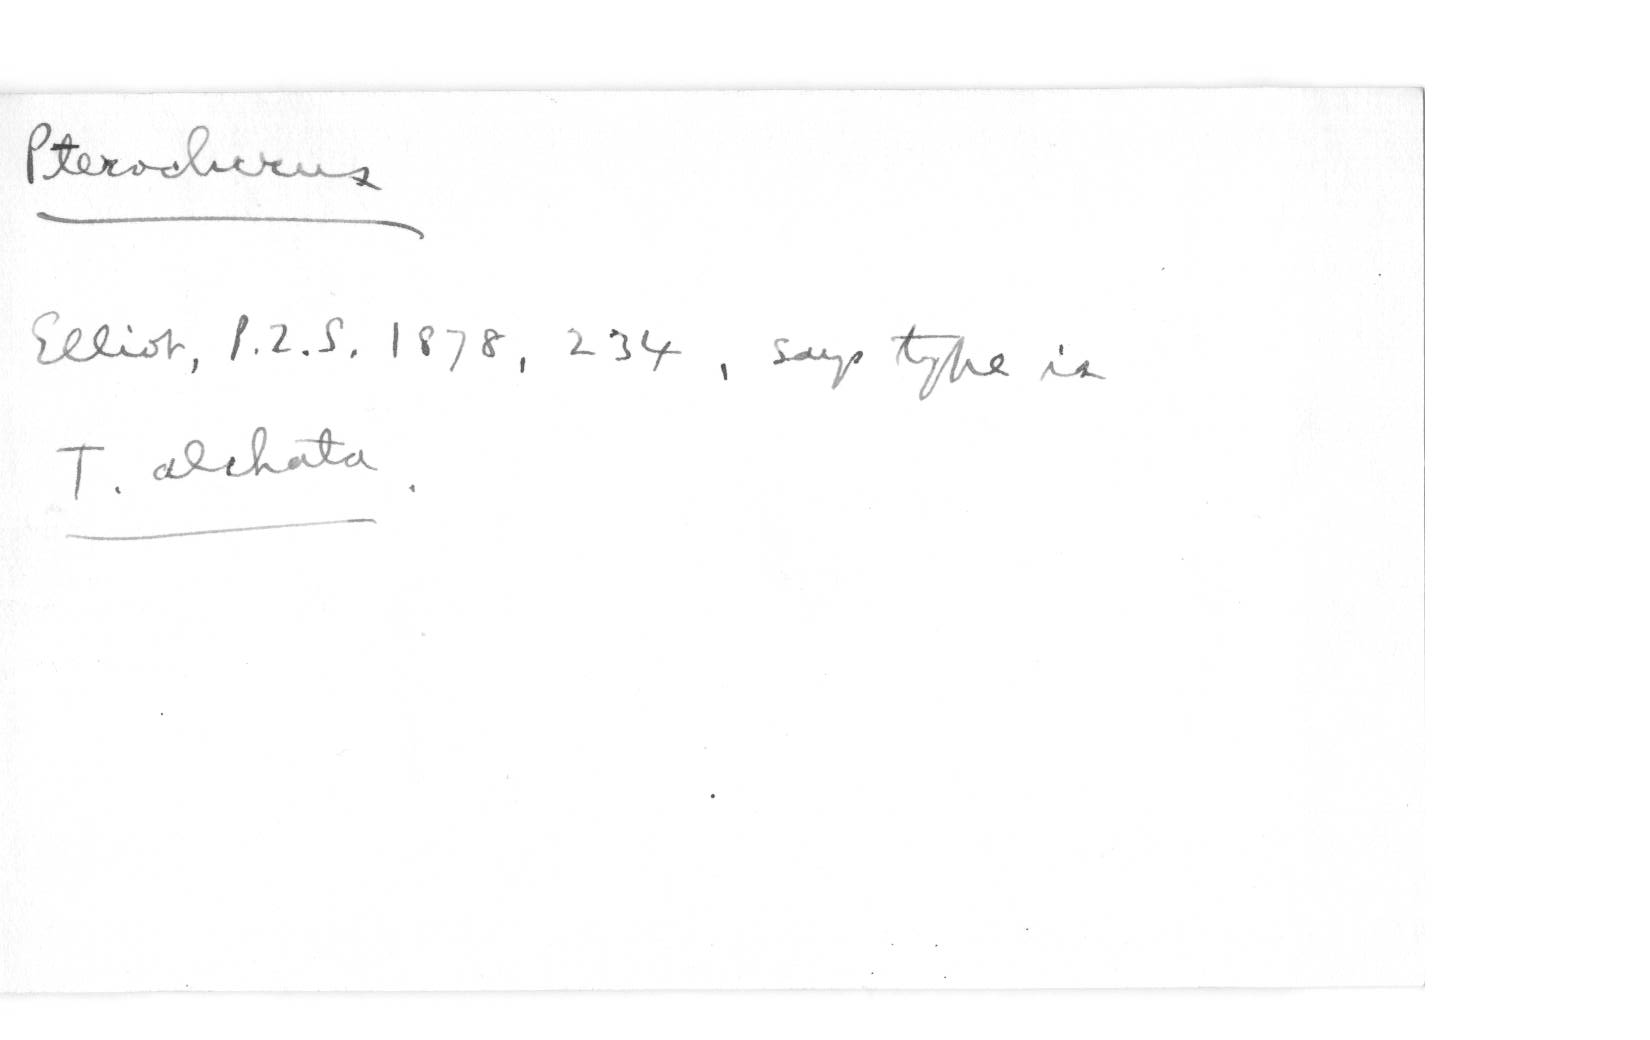 Pteroclurus
Elliot, P.Z.S. 1878, 234, says type is
T. alchata.